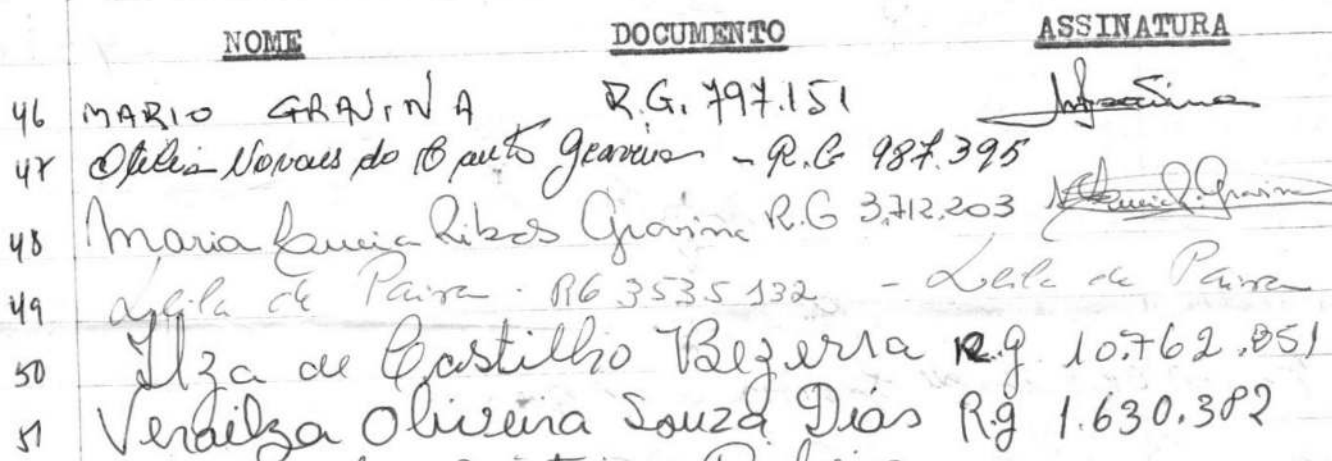 NOME DOCUMENTO ASSINATURA
46 MARIO GRAVINA R.G. 797.151
47 Novaes do Couto Gravina - R.G 987.395
48 Maria Lucia Ribas Gravina R.G 3.712.203
49 Leila de Paiva - RG 3535132 - Leila de Paiva
50 Ilza de Castilho Bezerra R.g 10.762.851
51 Oliveira Souza Dias R.g 1.630.382